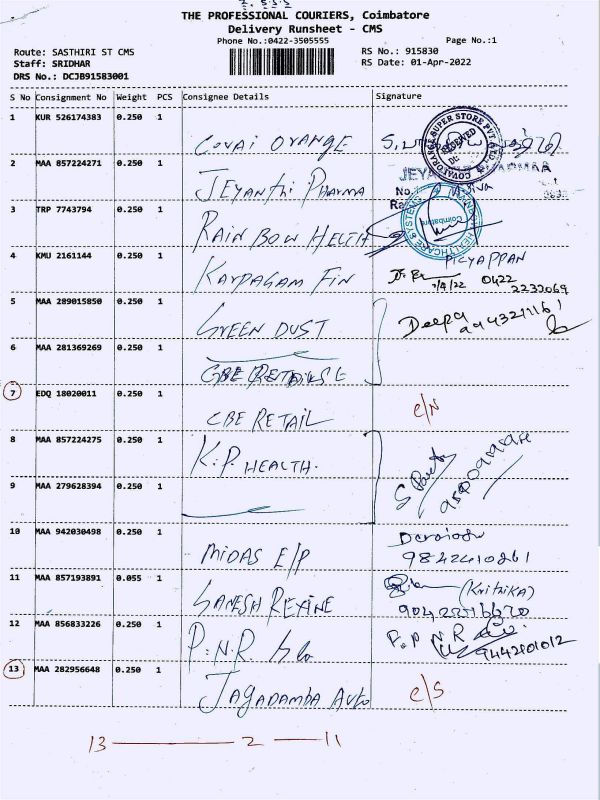 THE PROFESSIONAL COURIERS, Coimbatore
Delivery Runsheet - CMS
Phone No.:0422-3505555
Page No.:1
Route: SASTHIRI ST CMS
RS No.: 915830
Staff: SRIDHAR
RS Date: 01-Apr-2022
DRS No.: DCJB91583001
S No Consignment No Weight PCS Consignee Details Signature
1 KUR 526174383 0.250 1
COVAI ORANGE
2 MAA 857224271 0.250 1
JEYANTHI PHARMA
3 TRP 7743794 0.250 1
RAIN BOW HELTH
4 KMU 2161144 0.250 1
KARPAGAM FIN 7/4/22 0422
2232069
5 MAA 289015850 0.250 1
GREEN DUST Deepa
6 MAA 281369269 0.250 1
7 EDQ 18020011 0.250 1
CBE RETAIL c/N
8 MAA 857224275 0.250 1
K.P. HEALTH.
9 MAA 279628394 0.250 1
10 MAA 942030498 0.250 1
MIDAS E/P
11 MAA 857193891 0.055 1
(Krithika)
12 MAA 856833226 0.250 1
P.N.R. P.P N R
13 MAA 282956648 0.250 1
JAGADAMBA AUTO c/S
13 — 2 — 11